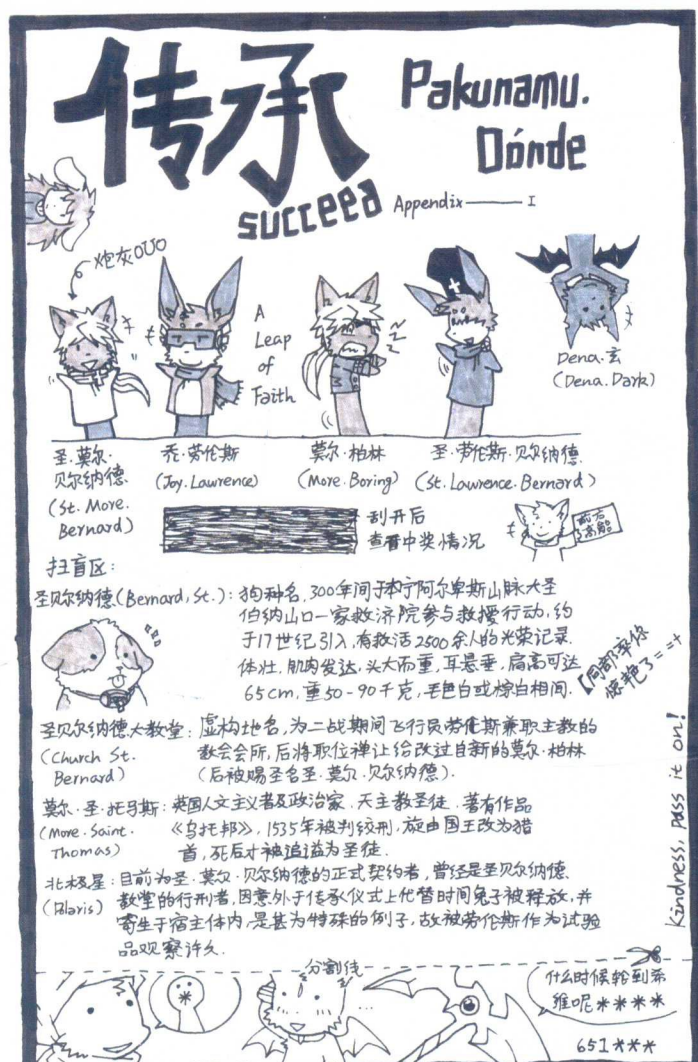 传承
succeed
Pakunamu.
Dónde
Appendix —— I
炮灰OUO
A
Leap
of
Faith
Dena.玄
(Dena.Dark)
圣·莫尔·
贝尔纳德
(St. More.
Bernard)
乔·劳伦斯
(Joy.Lawrence)
莫尔·柏林
(More.Boring)
圣·劳伦斯·贝尔纳德
(St.Lawrence.Bernard)
刮开后
查看中奖情况
前方
高能
扫盲区:
圣贝尔纳德(Bernard, St.): 狗种名,300年间于本宁阿尔卑斯山脉大圣
伯纳山口一家救济院参与救援行动,约
于17世纪引入,有救活2500余人的光荣记录.
体壮,肌肉发达,头大而重,耳悬垂,肩高可达
65cm,重50-90千克,毛色白或棕白相间.
圣贝尔纳德大教堂: 虚构地名,为二战期间飞行员劳伦斯兼职主教的
(Church St.
Bernard)
教会会所,后将职位禅让给改过自新的莫尔·柏林
(后被赐圣名圣·莫尔·贝尔纳德).
莫尔·圣·托马斯: 英国人文主义者及政治家,天主教圣徒.著有作品
(More.Saint.
Thomas)
《乌托邦》,1535年被判绞刑,旋由国王改为猎
首,死后才被追谥为圣徒.
北极星: 目前为圣·莫尔·贝尔纳德的正式契约者,曾经是圣贝尔纳德
(Polaris)
教堂的行刑者,因意外于传承仪式上代替时间兔子被释放,并
寄生于宿主体内,是甚为特殊的例子,故被劳伦斯作为试验
品观察许久.
Kindness, pass it on!
分割线
什么时候轮到希
维呢＊＊＊＊
651＊＊＊